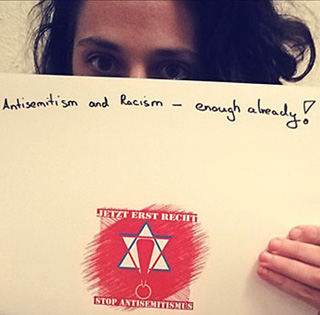 Antisemitism and Racism – enough already!
JETZT ERST RECHT
STOP ANTISEMITISMUS